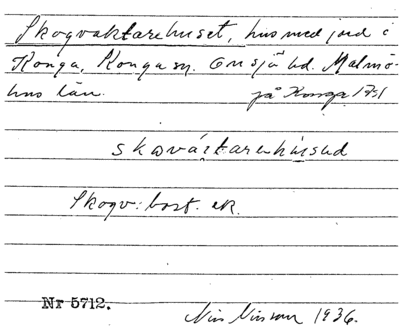 Skogvaktarehuset, hus med jord i
Konga, Konga sn. Onsjö hd. Malmö-
hus län. på Konga 17:1
skovaktarehused
Skogv: bost. ek.
Nr 5712.
Nils Nilsson 1936.